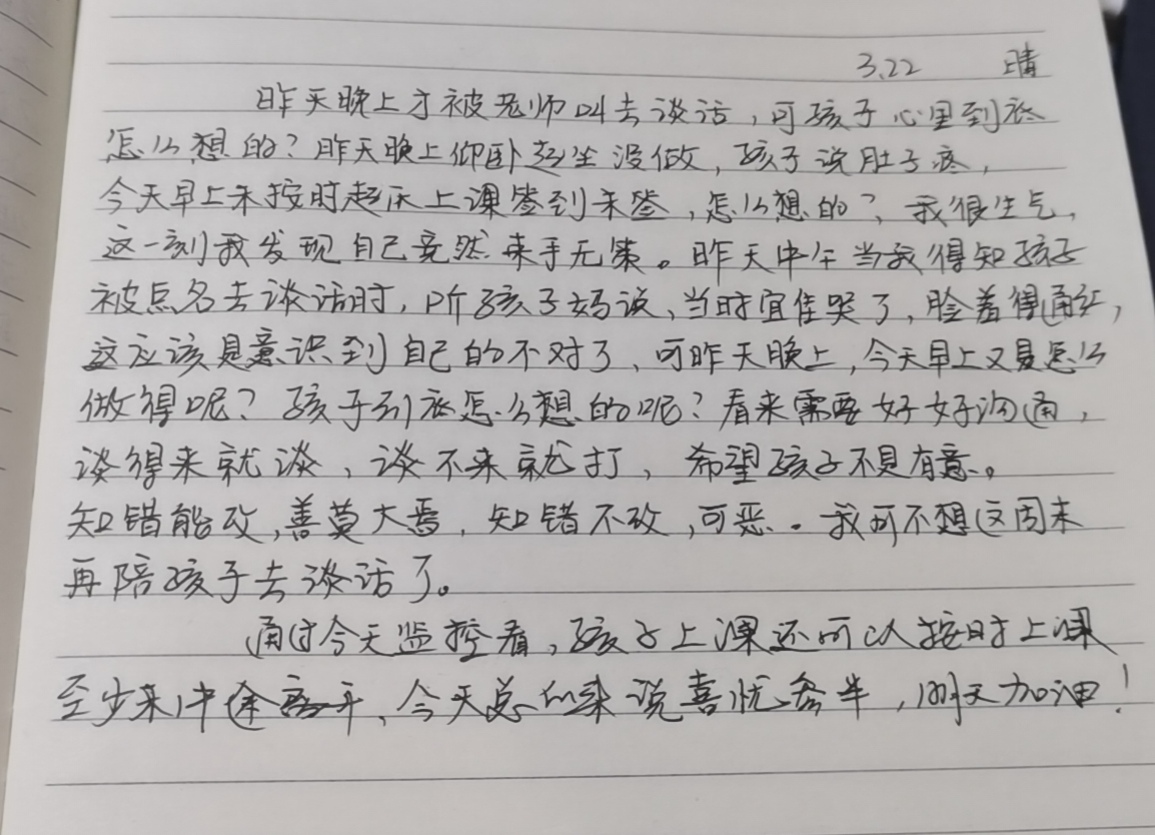 3.22 晴
昨天晚上才被老师叫去谈话，可孩子心里到底
怎么想的？昨天晚上仰卧起坐没做，孩子说肚子疼，
今天早上未按时起床上课签到未签，怎么想的？，我很生气，
这一刻我发现自己竟然束手无策。昨天中午当我得知孩子
被点名去谈话时，听孩子妈说，当时宜佳哭了，脸羞得通红，
这应该是意识到自己的不对了，可昨天晚上，今天早上又是怎么
做得呢？孩子到底怎么想的呢？看来需要好好沟通，
谈得来就谈、谈不来就打，希望孩子不是有意。
知错能改，善莫大焉，知错不改，可恶。我可不想这周末
再陪孩子去谈话了。
通过今天监控看，孩子上课还可以按时上课
至少未中途离开、今天总的来说喜忧参半，明天加油！